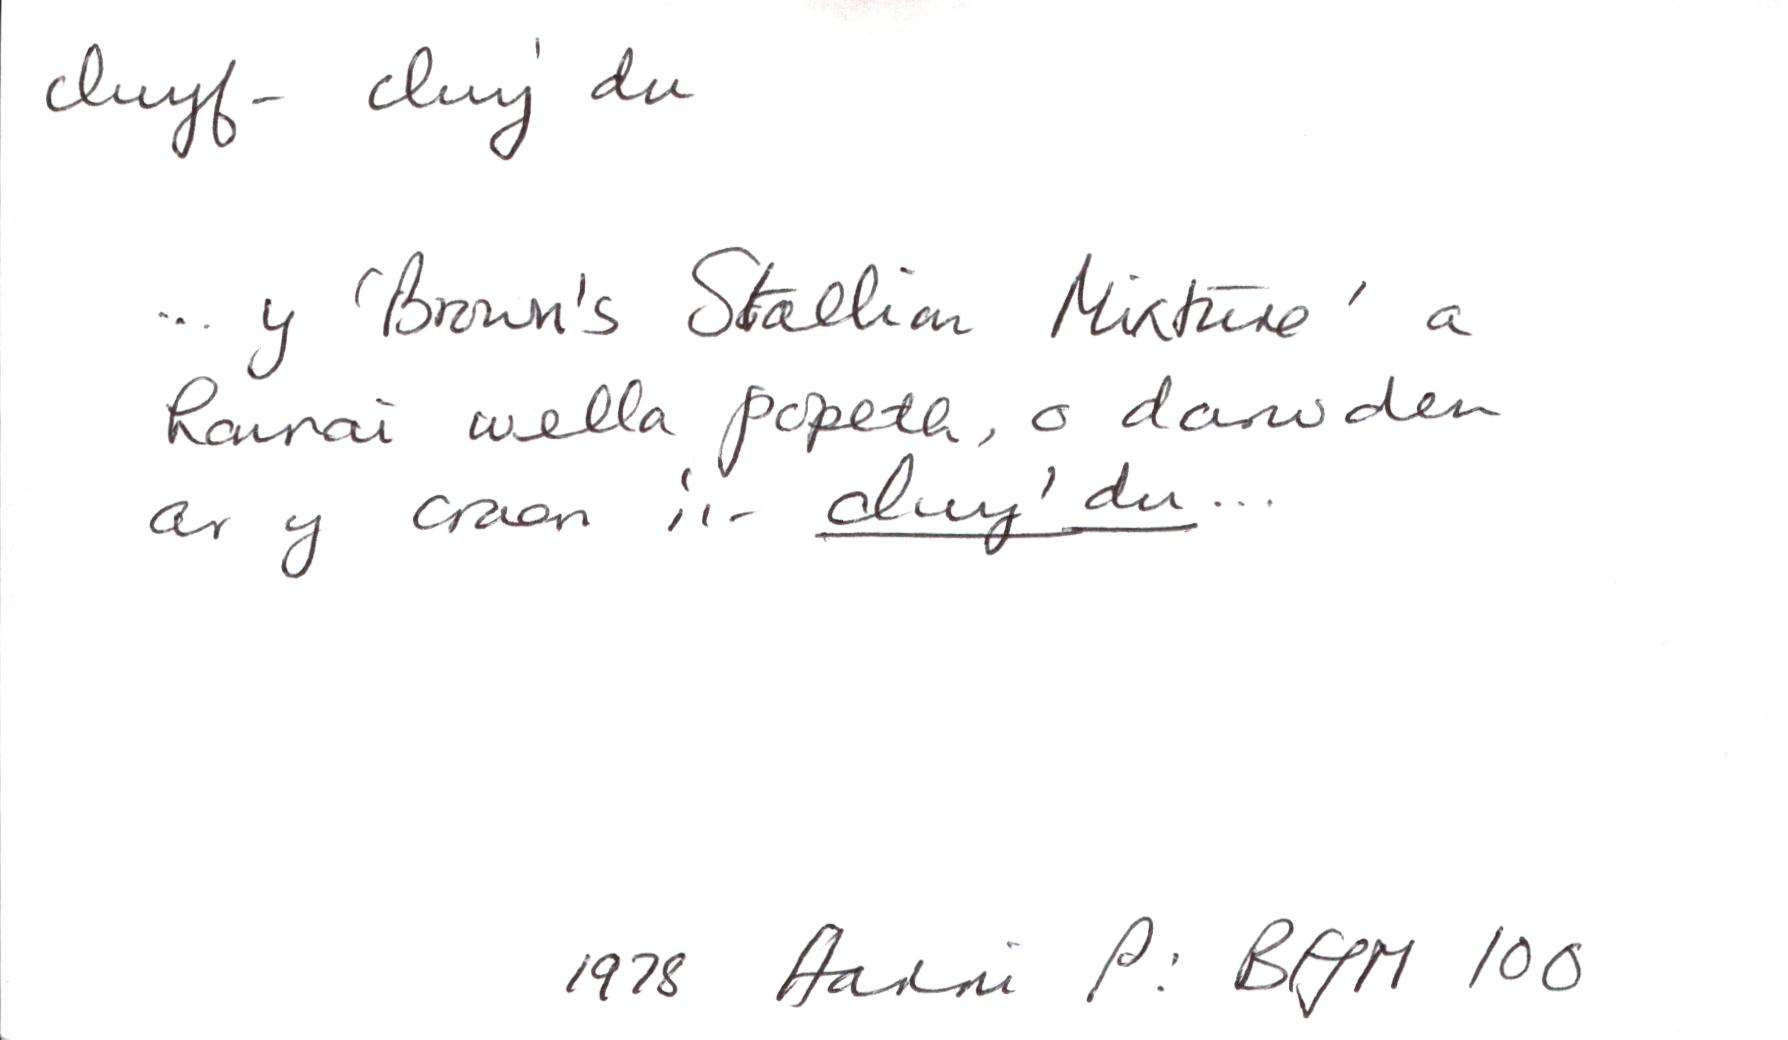 clwyf - clwy' du
... y 'Brown's Stallion Mixture' a
honnai wella popeth, o darwden
ar y croen i'r clwy' du ...
1978 P: BFYM 100